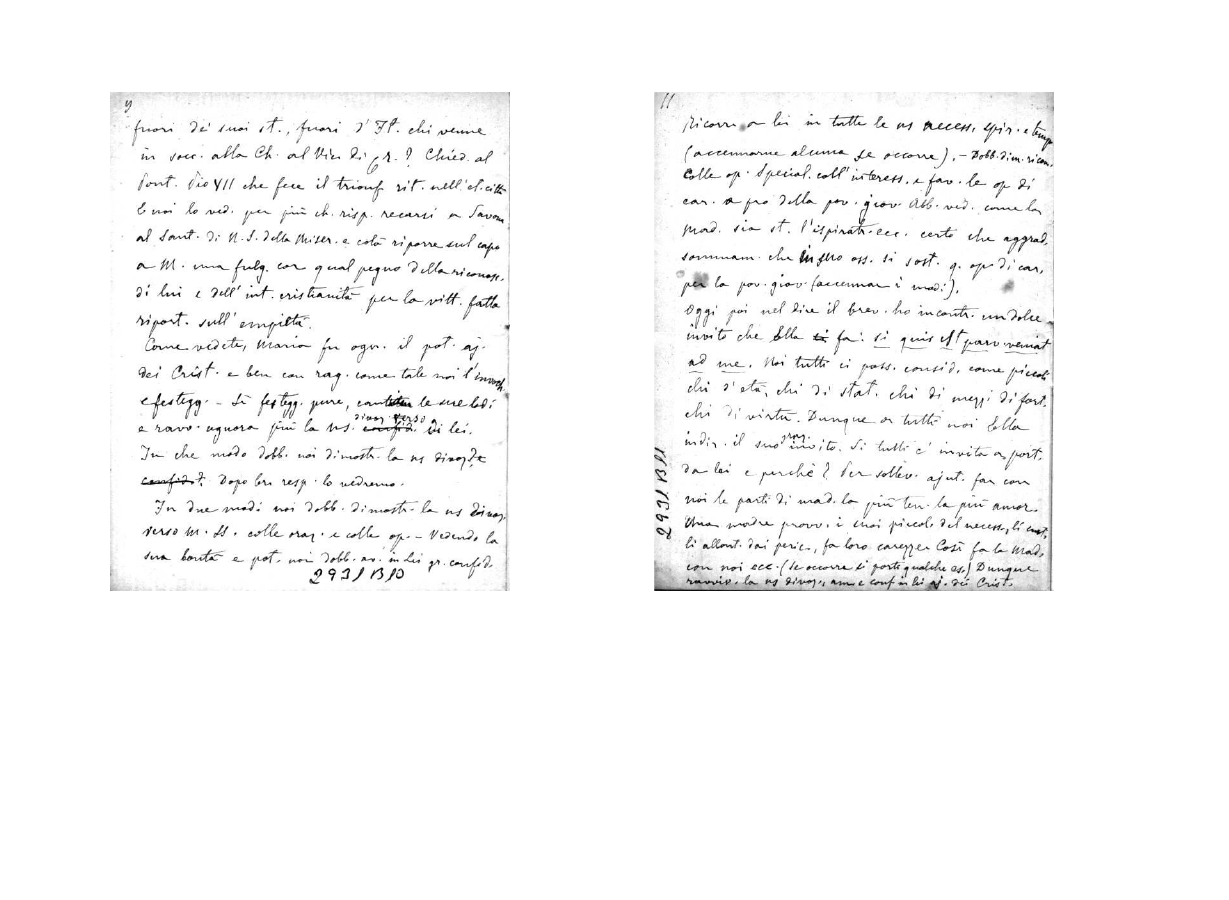 9
fuori dei suoi st., fuori d'It. chi venne
in socc. alla Ch. al Vic. di Cr.? Chied. al
Pont. Pio VII che fece il trionf. rit. nell'et. città
E noi lo ved. per più ch. risp. recarsi a Savona
al Sant. di N.S. della Miser. e colà riporre sul capo
a M. una fulg. cor. qual pegno della riconosc.
di lui e dell'int. cristianità per la vitt. fatta
riport. sull'empietà.
Come vedete, Maria fu ogn. il pot. aj.
dei Crist. e ben con rag. come tale noi l'invoch.
e festegg. - Si festegg. pure, cantiam le sue lodi
divoz. verso
e ravv. ognora più la ns. confid. di lei.
In che modo dobb. noi dimostr. la ns divoz. e
confid.? Dopo brv resp. lo vedremo.
In due modi noi dobb. dimostr. la ns divoz.
verso M. SS. colle oraz. e colle op. - Vedendo la
sua bontà e pot. noi dobb. av. in Lei gr. confid.
2931 B10
11
Ricorr. a lei in tutte le ns necess. spir. e temp.
(accennarne alcuna se occorre). - Dobb. dim. ricon.
Colle op. Special. coll'interess. e fav. le op. di
car. a pro della pov. giov. Abb. ved. come la
Mad. sia st. l'ispiratr. ecc. certo che aggrad.
sommam. che in suo oss. si sost. q. op. di car.
per la pov. giov. (accennar i modi).
Oggi poi nel dire il brev. ho incontr. un dolce
invito che Ella si fa: si quis est parvo veniat
ad me. Noi tutti ci poss. consid. come piccoli
chi d'età, chi di stat. chi di mezzi di fort.
chi di virtù. Dunque a tutti noi Ella
graz.
indir. il suo invito. Si tutti c'invita a port.
da lei e perchè? Per sollev. ajut. far con
noi le parti di mad. la più ten. la più amor.
Una madre provv. i suoi piccoli del necess., li cust.
li allont. dai peric., fa loro carezze. Così fa la Mad.
con noi ecc. (se occorre si porti qualche es.) Dunque
ravviv. la ns divoz., am. e conf. in lei aj. dei Crist.
2931 B11